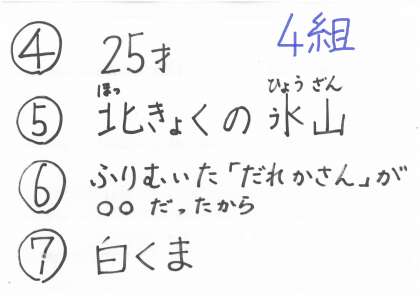 4組
④ 25才
⑤ 北きょくの氷山
ほっ ひょうざん
⑥ ふりむいた「だれかさん」が
○○だったから
⑦ 白くま